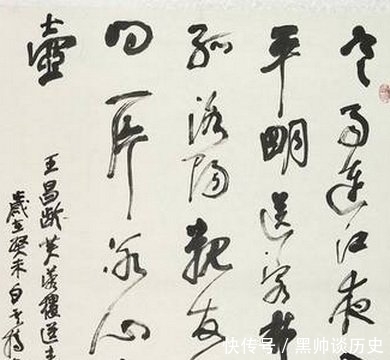 寒雨連江夜
平明送客楚
孤洛陽親友
問一片冰心
壺
王昌齡芙蓉樓送辛
歲在癸未
快传号/黑帅谈历史